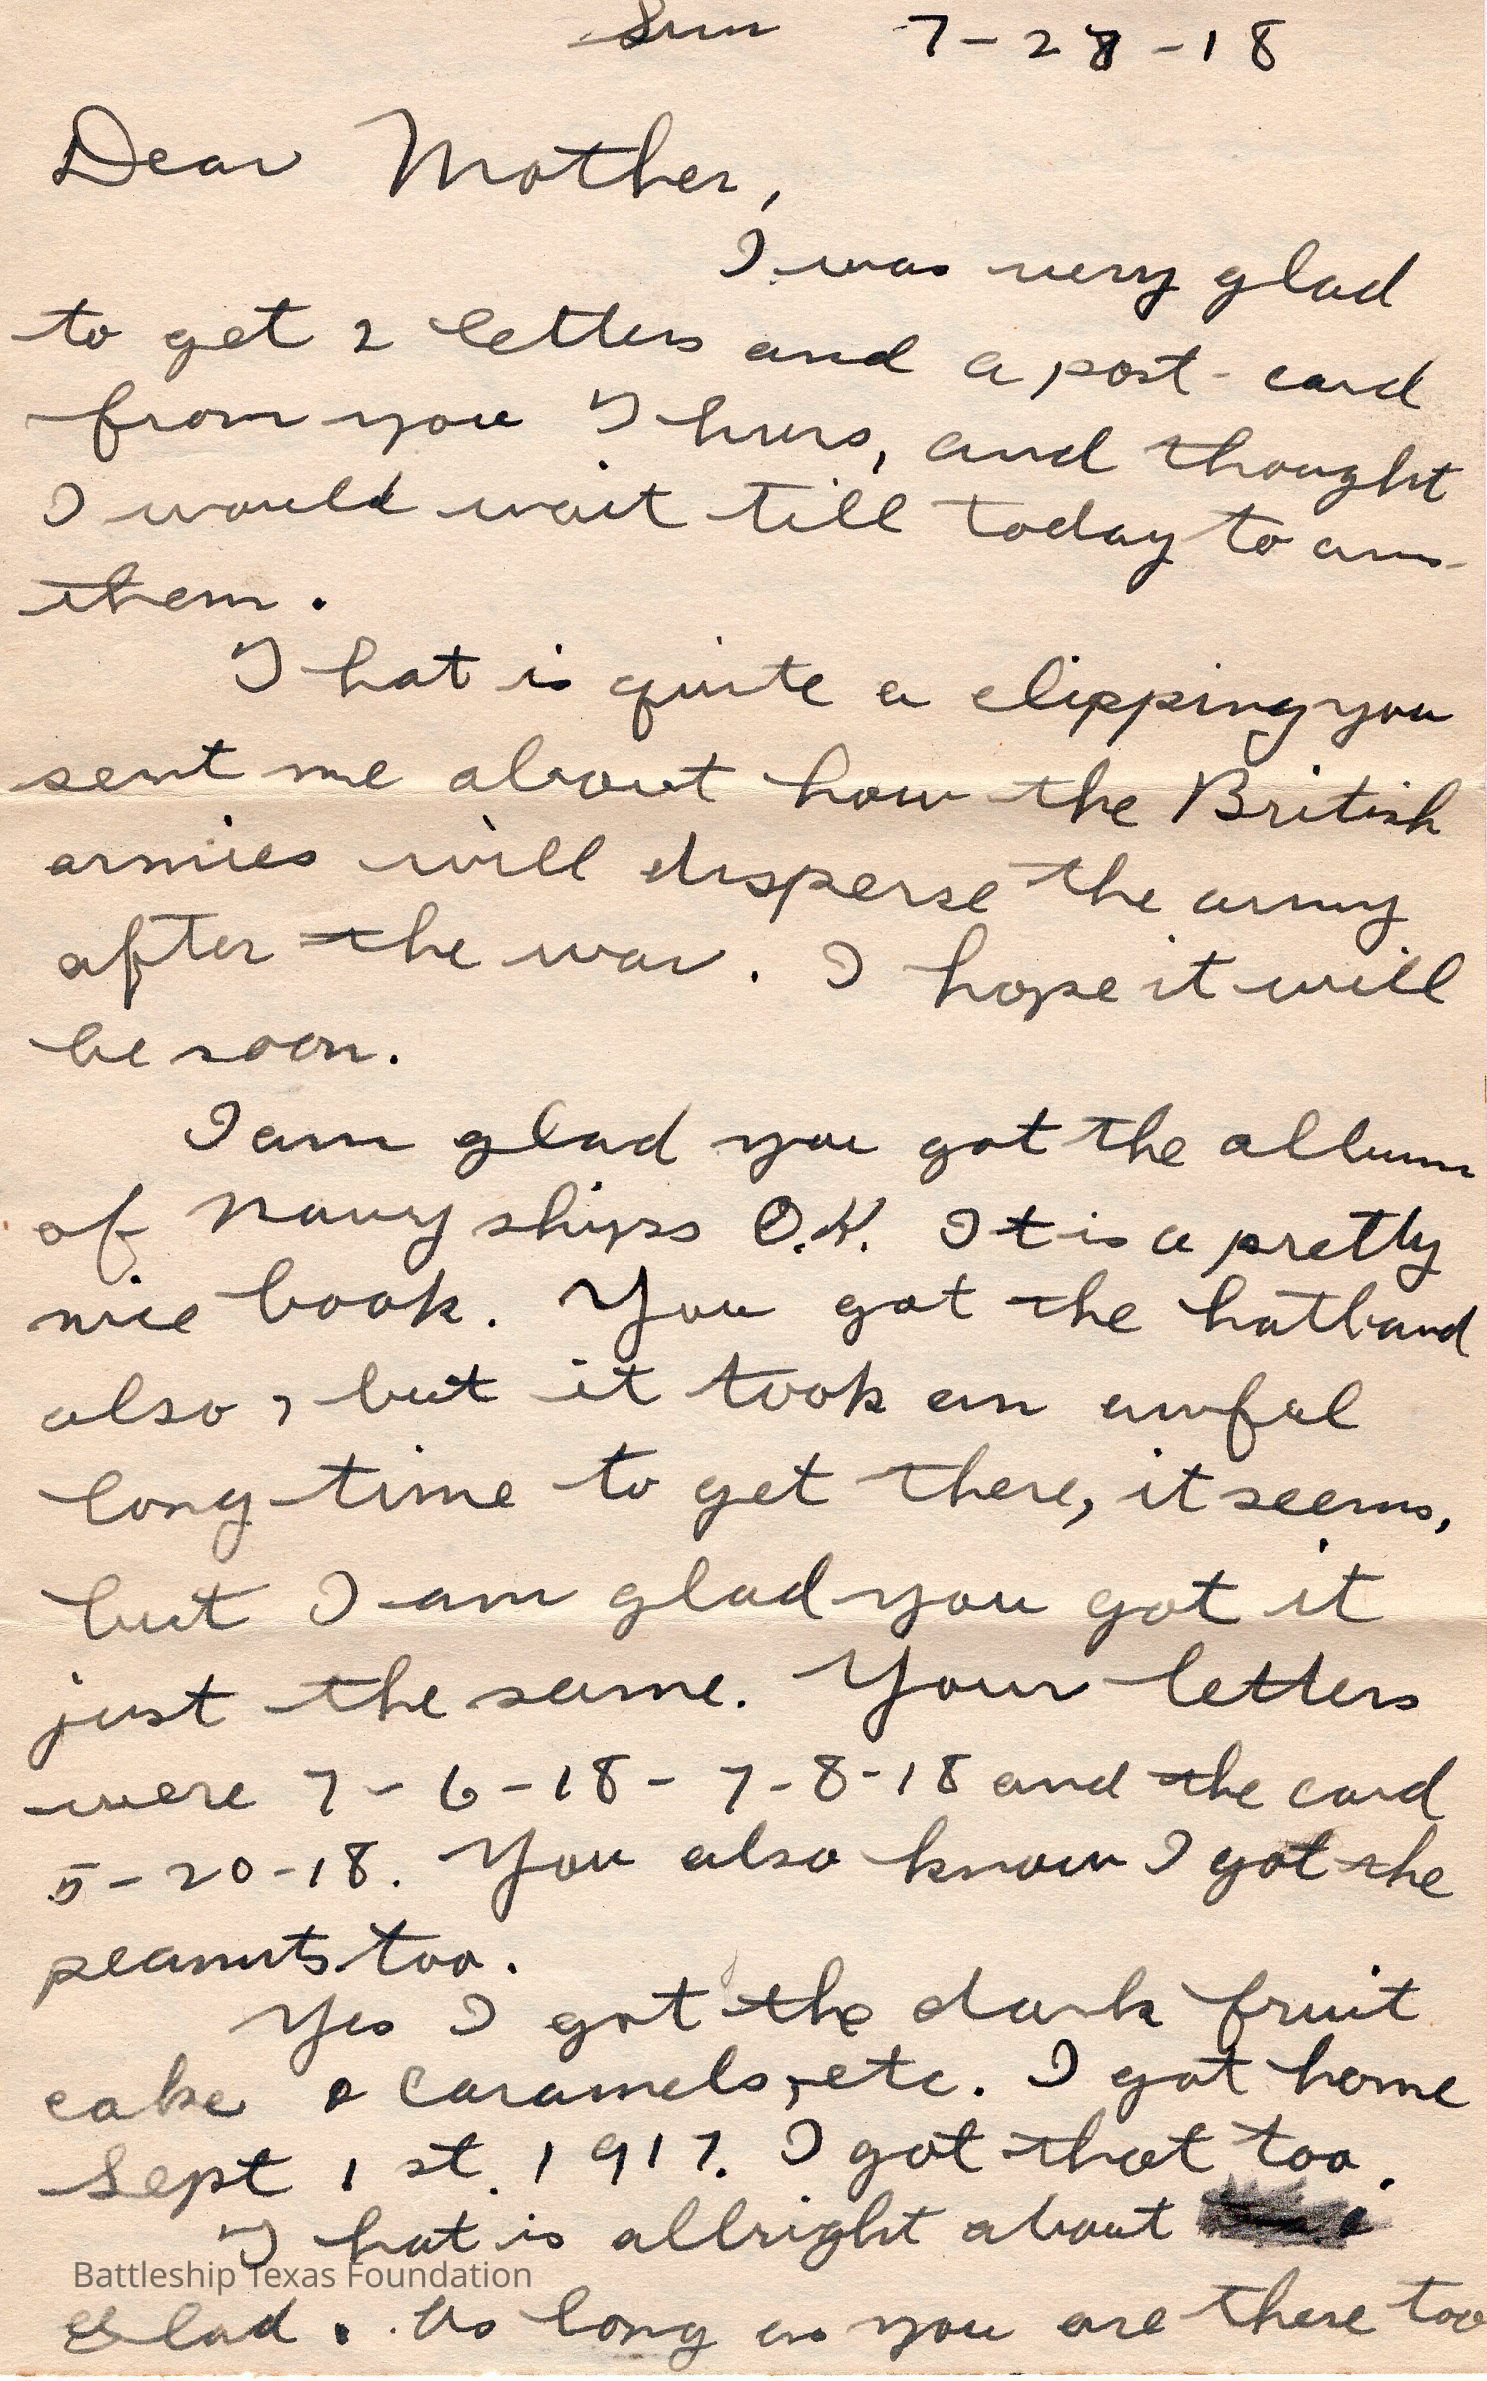 Sun 7-28-18
Dear Mother,
I was very glad
to get 2 letters and a post-card
from you Thurs, and thought
I would wait till today to ans-
them.
That is quite a clipping you
sent me about how the British
armies will disperse the army
after the war. I hope it will
be soon.
I am glad you got the album
of Navy ships O.K. It is a pretty
nice book. You got the hatband
also, but it took an awful
long time to get there, it seems,
but I am glad you got it
just the same. Your letters
were 7-6-18- 7-8-18 and the card
5-20-18. You also know I got the
peanuts too.
Yes I got the dark fruit
cake & caramels, etc. I got home
Sept 1st. 1917. I got that too.
That is allright about
Battleship Texas Foundation
Glad. As long as you are there too